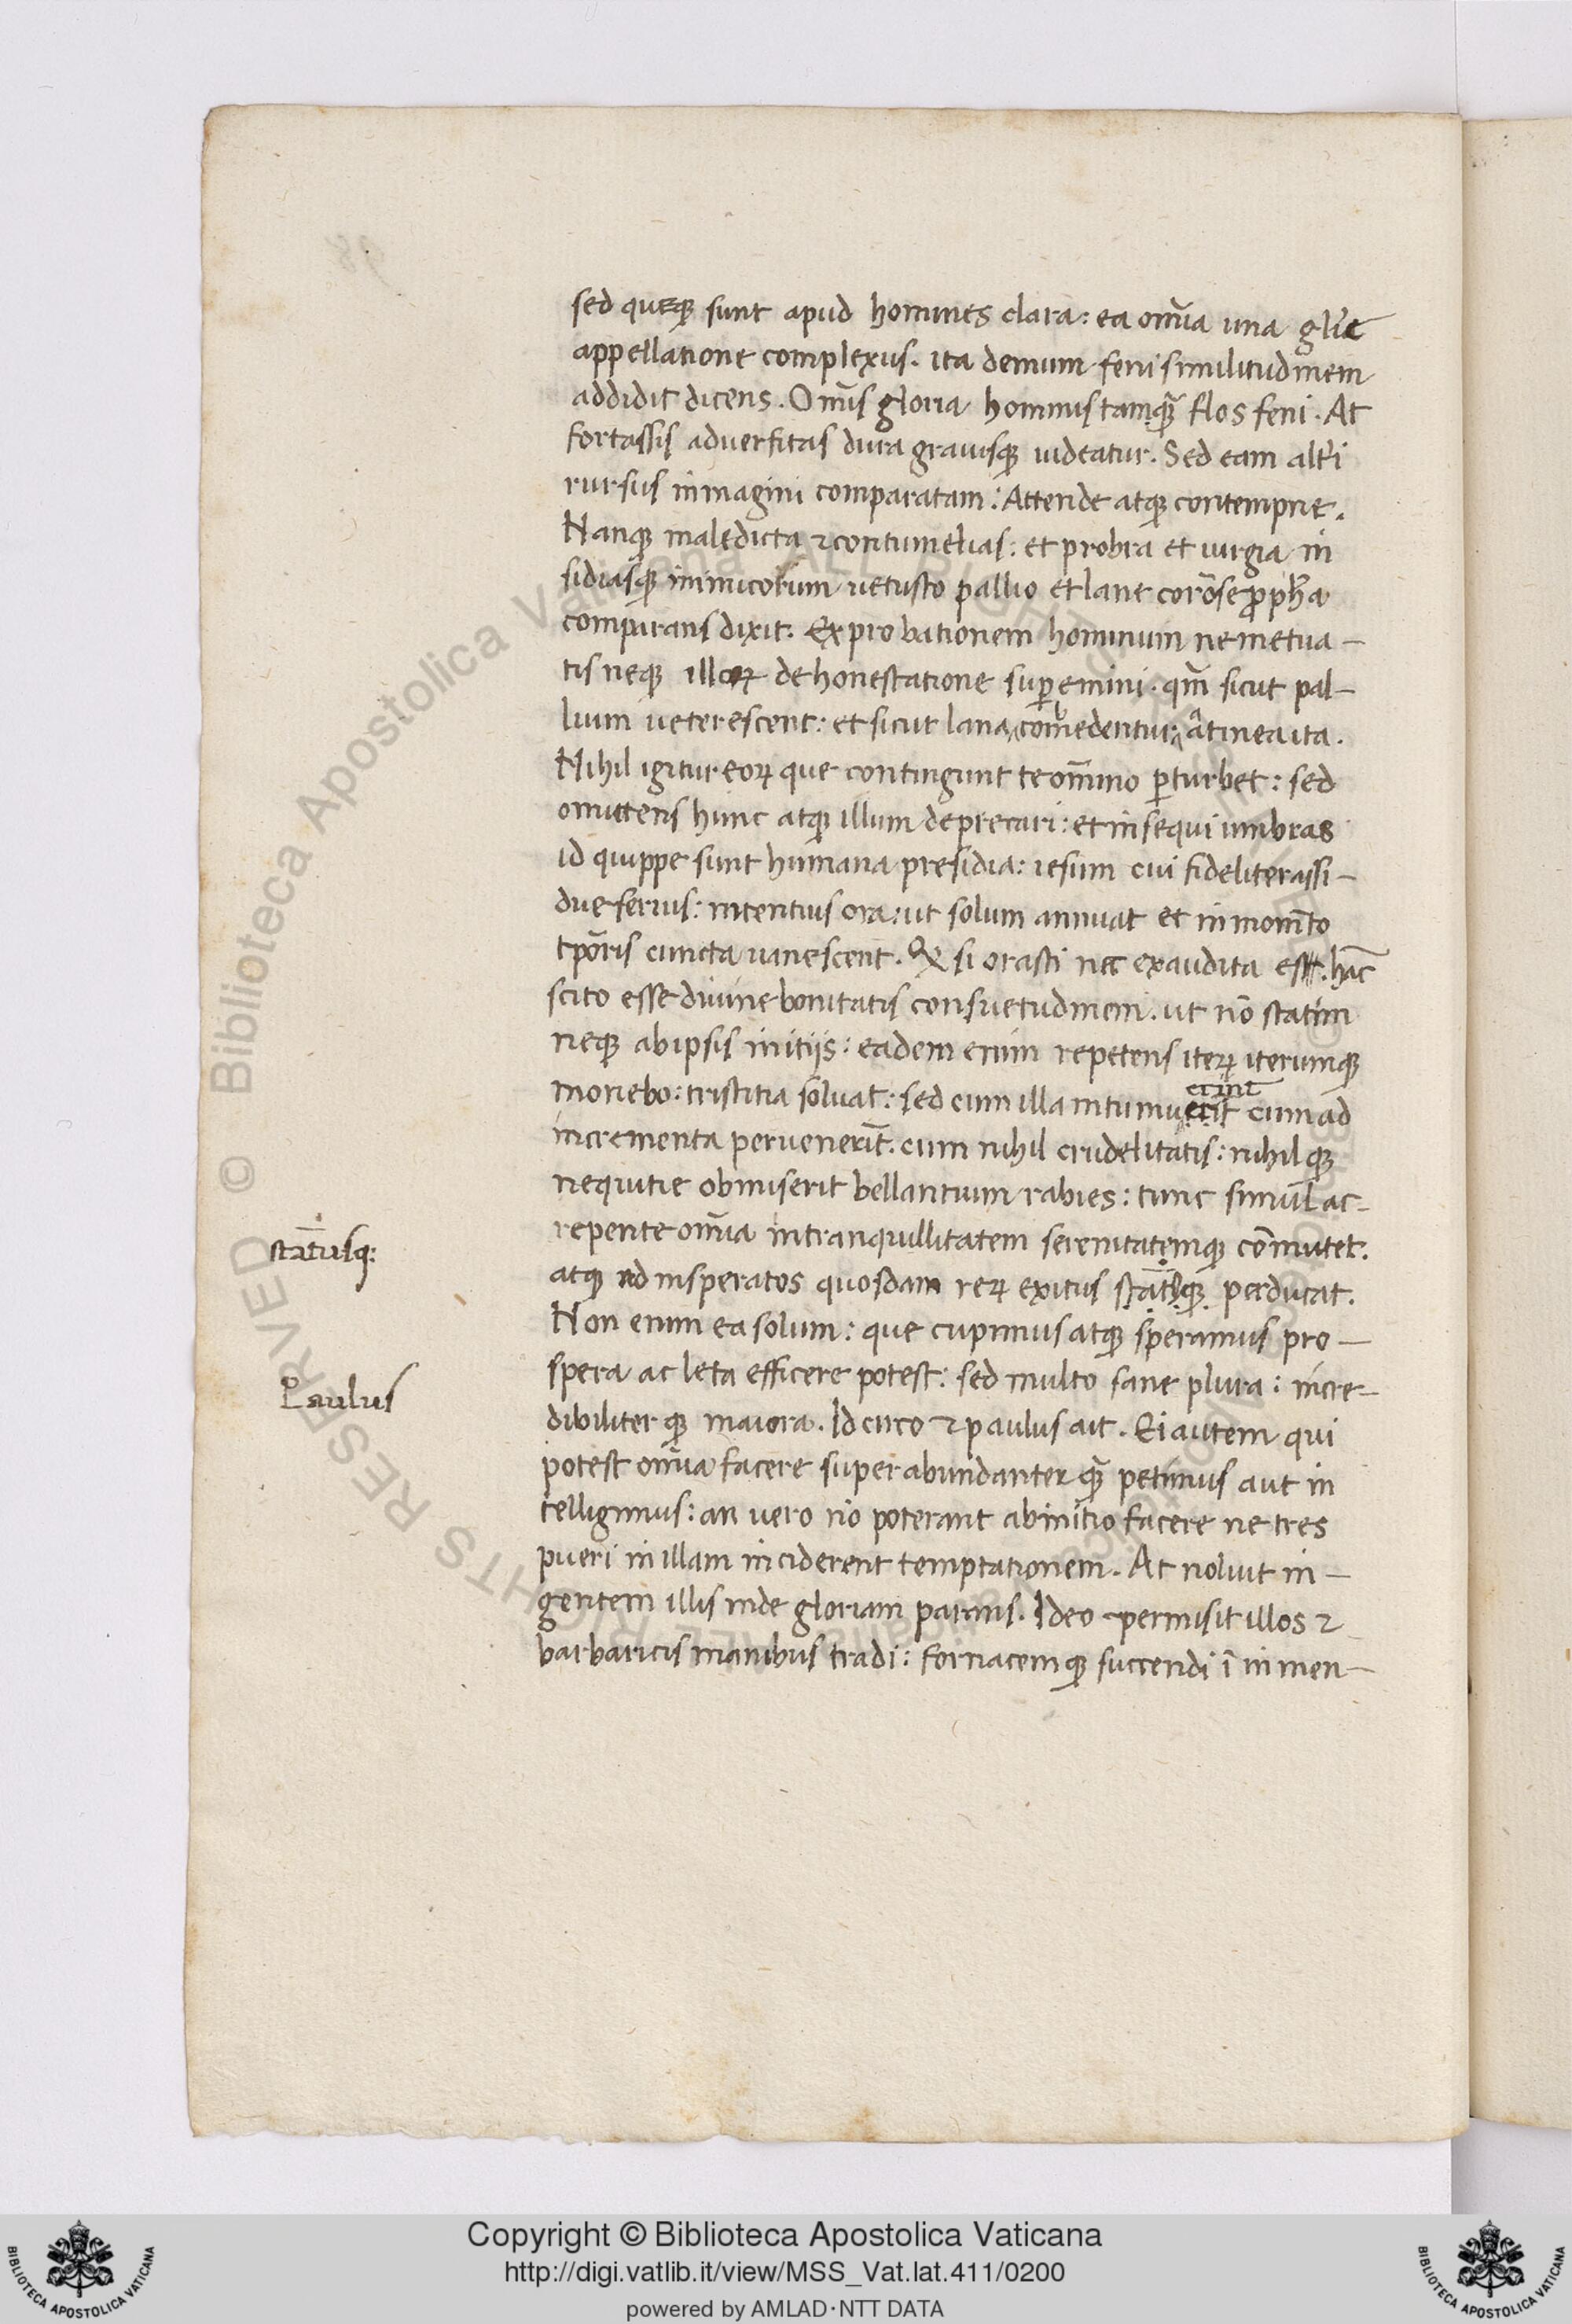 sed queq; sunt apud homines clara: ea om̄ia una glīe
appellatione complexus. ita demum feni similitudinem
addidit dicens. Om̄is gloria hominis tamq̄ flos feni. At
fortassis aduersitas dura grauisq; uideatur. Sed eam altēi
rursus inmagini comparatam: Attende atq; contempne.
Nanq; maledicta ⁊ contumelias: et probra et iurgia in
sidiasq; inimicorum uetusto pallio et lane corōse ꝓpħa
comparans dixit. Exprobationem hominum ne metua-
tis neq; illoꝝ dehonestatione suꝑemini. qm̄ sicut pal-
lium ueterescent: et sicut lana comedentur a tinea ita.
Nihil igitur eoꝝ que contingunt te om̄ino ꝑturbet: sed
omittens hunc atq; illum deprecari: et insequi umbras
id quippe sunt humana presidia: iesum cui fideliter assi-
due seruis: intentius ora: ut solum annuat et in mom̄to
tp̄oris cuncta uanescent. Qꝫ si orasti nec exaudita es. hāc
scito esse diuine bonitatis consuetudinem. ut nō statim
neq; ab ipsis initijs: eadem enim repetens iteꝝ iterumq;
monebo: tristitia soluat: sed cum illa intumuerit cum ad
erint
incrementa peruenerīt. cum nihil crudelitatis: nihil q;
nequitie obmiserit bellantium rabies: tunc simul ac-
repente om̄ia in tranquillitatem serenitatemq; cōmutet.
statusq:
atq; ad insperatos quosdam reꝝ exitus statq; perducat.
Non enim ea solum: que cupimus atq; speramus pro-
spera ac leta efficere potest: sed multo sane plura: incre-
Paulus
dibiliter q; maiora. Idcirco ⁊ paulus ait. Ei autem qui
potest om̄ia facere superabundanter q̄ petimus aut in
telligimus: an uero nō poterant ab initio facere ne tres
pueri in illam inciderent temptationem. At noluit in-
gentem illis inde gloriam parans. Ideo permisit illos ⁊
barbaricis manibus tradi: fornacemq; succendi ī inmen-
Copyright © Biblioteca Apostolica Vaticana
http://digi.vatlib.it/view/MSS_Vat.lat.411/0200
powered by AMLAD·NTT DATA